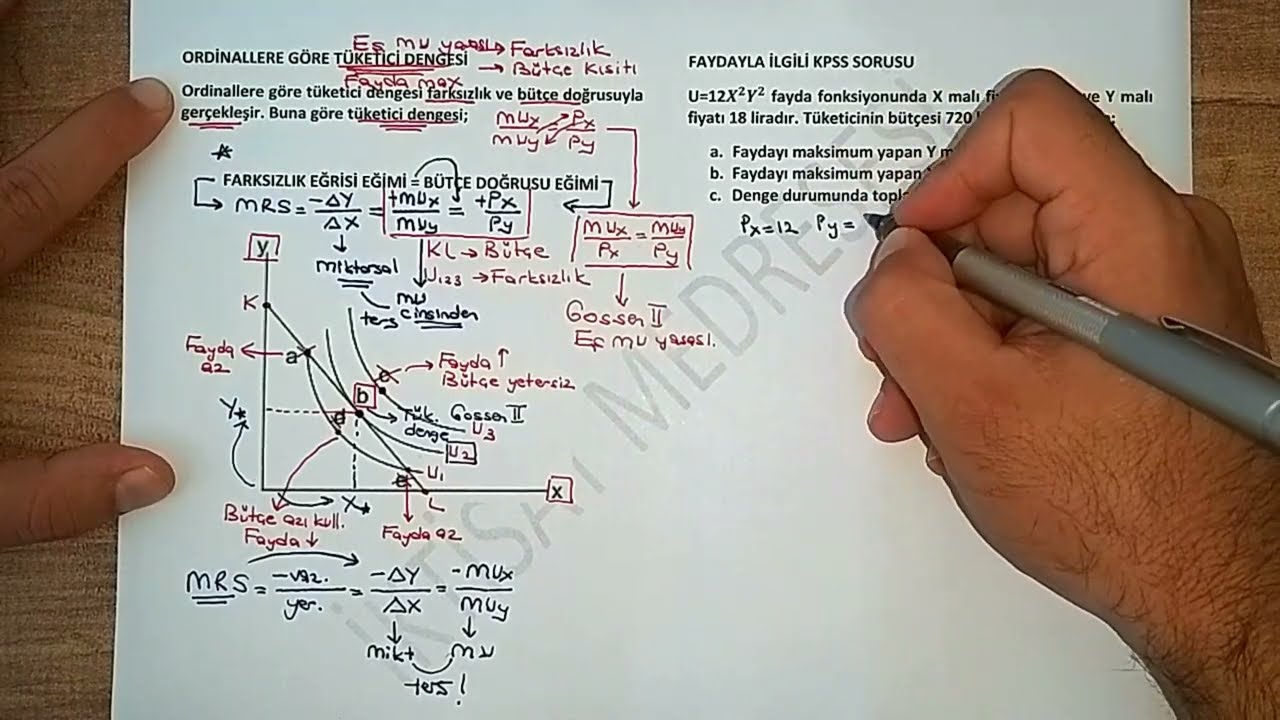 Eş MU yasası → Farksızlık
→ Bütçe Kısıtı
ORDİNALLERE GÖRE TÜKETİCİ DENGESİ
Fayda max
Ordinallere göre tüketici dengesi farksızlık ve bütçe doğrusuyla
gerçekleşir. Buna göre tüketici dengesi;
MUx / MUy = Px / Py
FARKSIZLIK EĞRİSİ EĞİMİ = BÜTÇE DOĞRUSU EĞİMİ
MRS = -ΔY / ΔX = +MUx / MUy = +Px / Py
MUx / Px = MUy / Py
KL → Bütçe
U123 → Farksızlık
miktarsal
ters
MU cinsinden
Gossen II
Eş MU yasası.
y
K
Fayda az
a
b
Fayda ↑
Bütçe yetersiz
Tük. denge
Gossen II
U3
U2
d
Y*
U1
e
X*
L
x
Bütçe azı kull.
Fayda ↓
Fayda az
MRS = -vaz. / yer. = -ΔY / ΔX = -MUx / MUy
mikt
MU
ters!
FAYDAYLA İLGİLİ KPSS SORUSU
U=12X²Y² fayda fonksiyonunda X malı ve Y malı
fiyatı 18 liradır. Tüketicinin bütçesi 720
a. Faydayı maksimum yapan Y
b. Faydayı maksimum yapan
c. Denge durumunda
Px=12 Py=
İKTİSAT MEDRESESİ